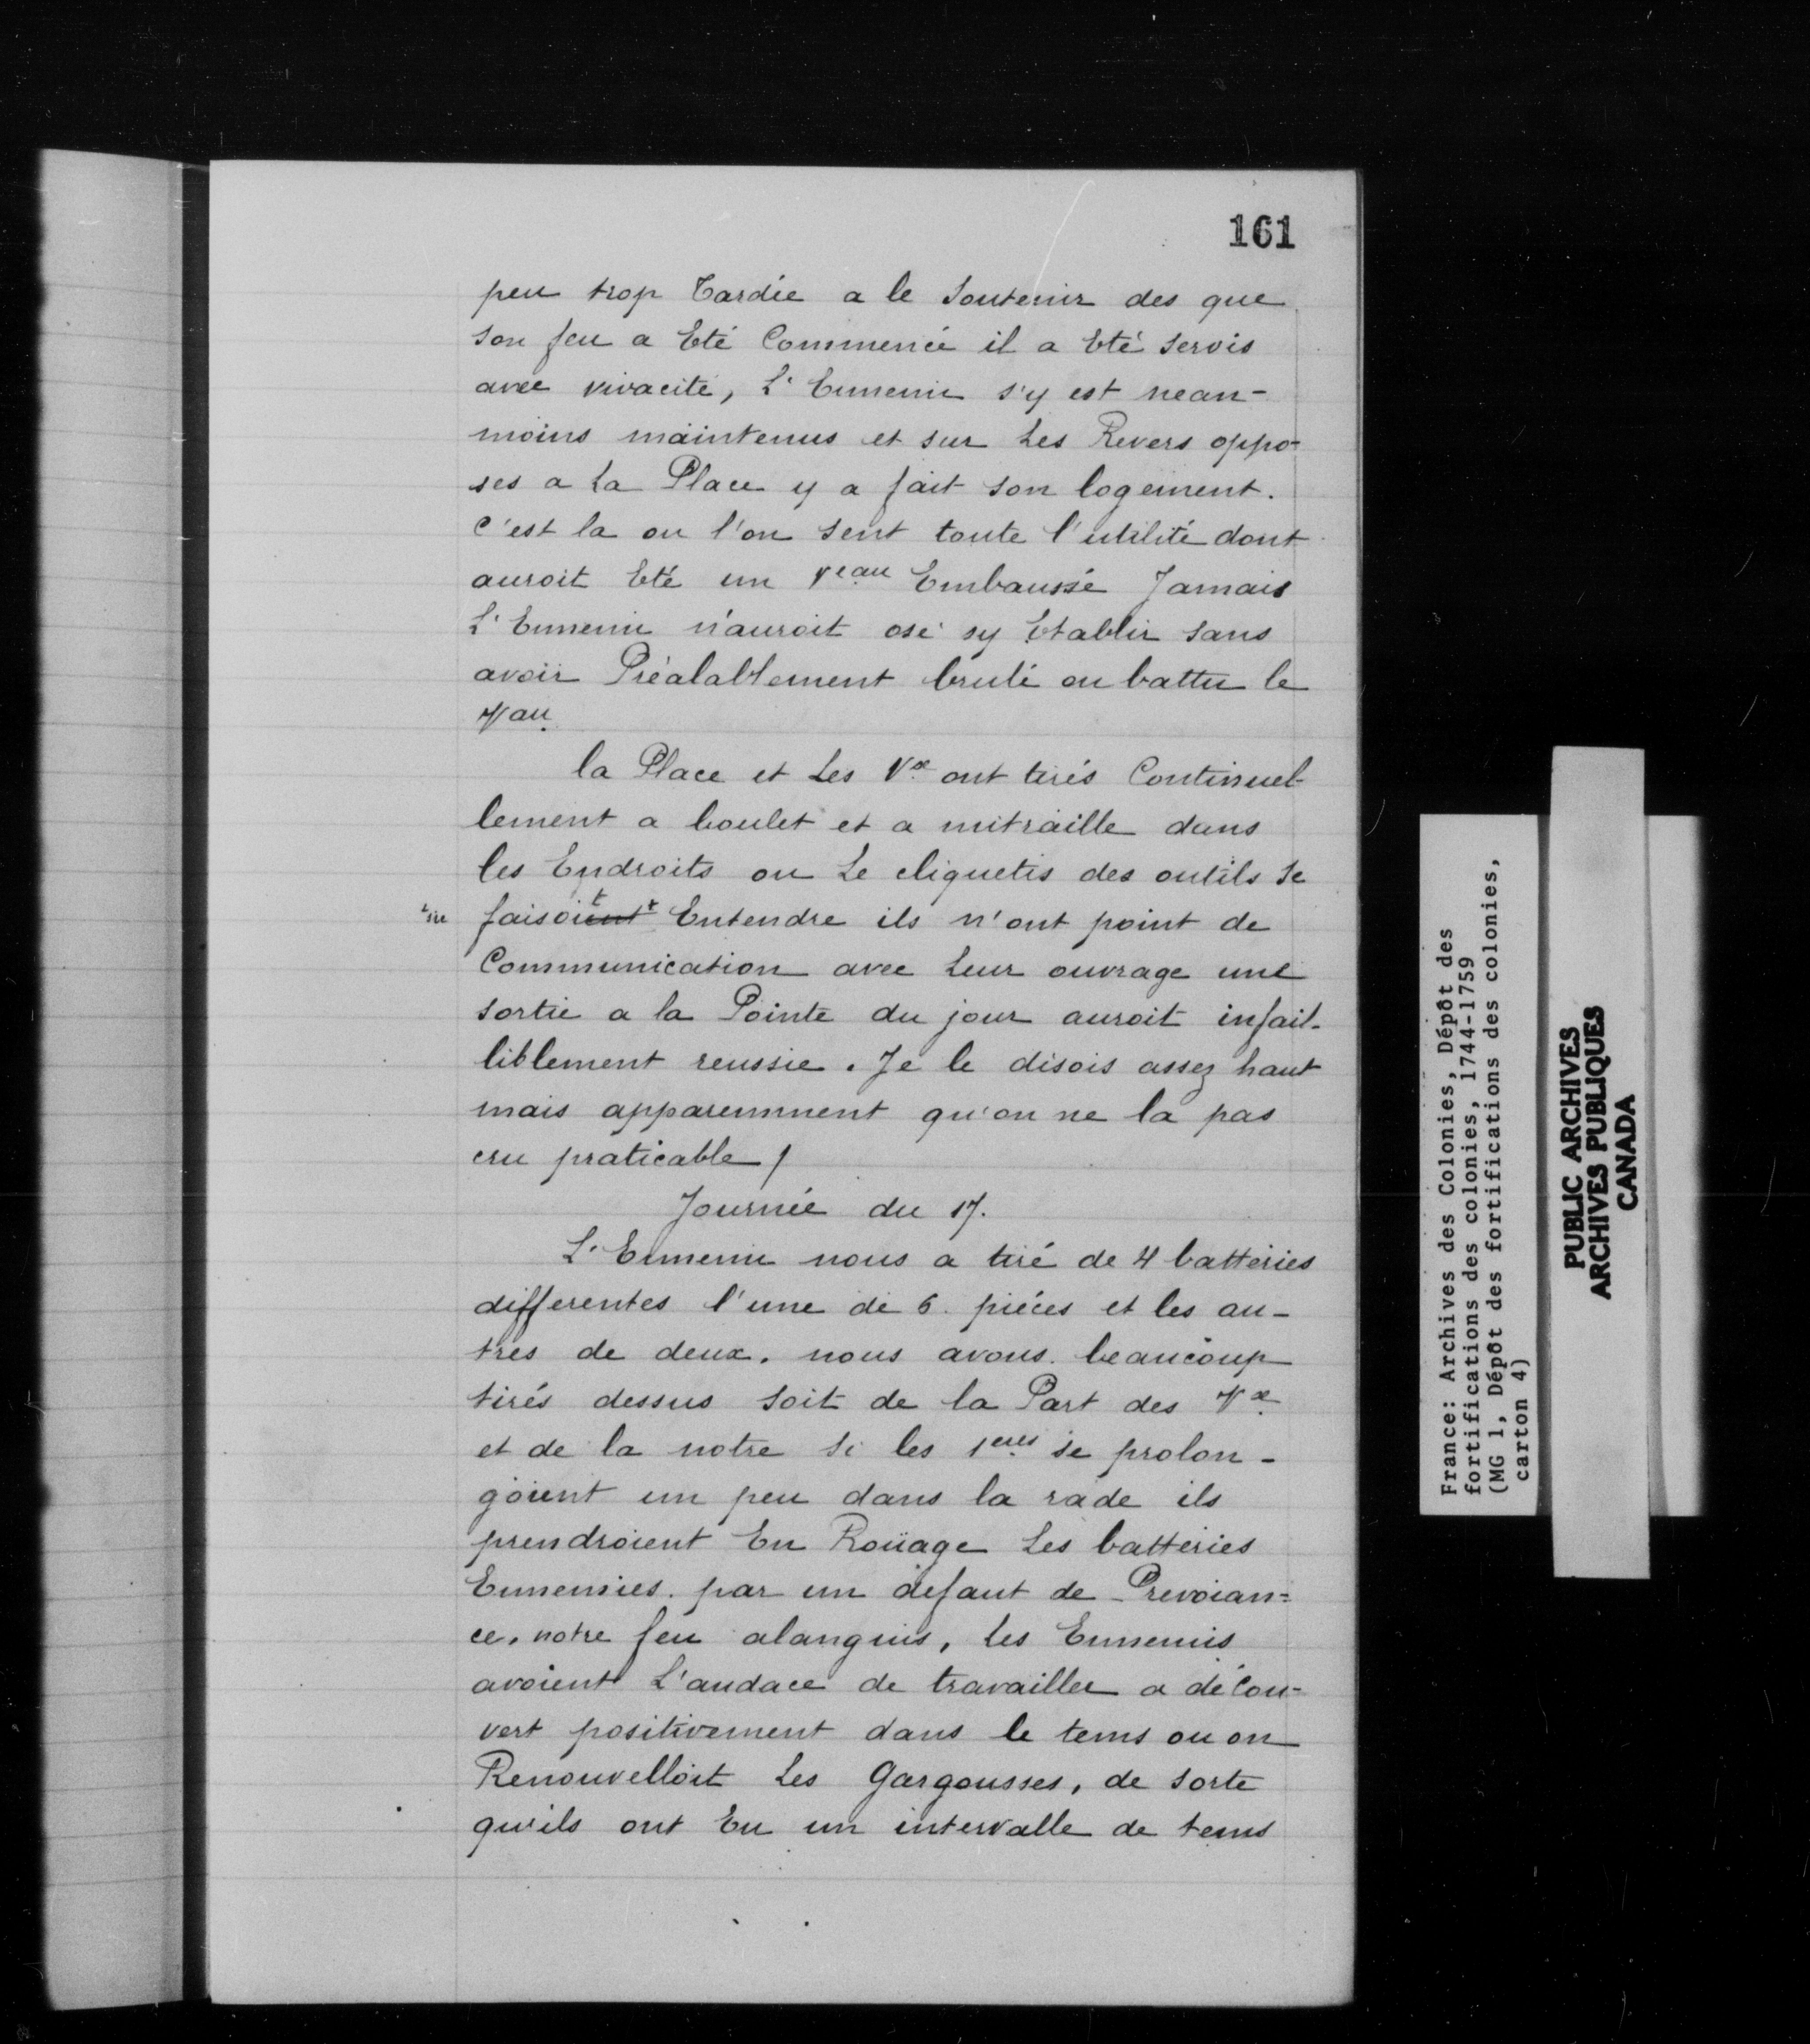 161
peu trop Tardée a le Soutenir des que
son feu a Eté Commencé il a Eté servis
avec vivacité, L'Ennemi s'y est nean-
moins maintenus et sur Les Revers oppo-
ses a La Place y a fait son logement.
C'est la ou l'on sent toute l'utilité dont
auroit Eté un Veau Embaussé Jamais
L'Ennemi n'auroit osé sy Etablir sans
avoir Préalablement brulé ou battu le
Vau
la Place et Les Vx ont tirés Continuel-
lement a boulet et a mitraille dans
les Endroits ou Le cliquetis des outils se
faisoit Entendre ils n'ont point de
Communication avec Leur ouvrage une
sortie a la Pointe du jour auroit infail-
liblement reussie. Je le disois assez haut
mais apparemment qu'on ne la pas
cru praticable /
Journée du 17.
L'Ennemi nous a tiré de 4 batteries
differentes l'une de 6. piéces et les au-
tres de deux. nous avons beaucoup
tirés dessus soit de la Part des Vx
et de la notre si les 1ers se prolon-
goient un peu dans la rade ils
prendroient En Roüage Les batteries
Ennemies. par un défaut de Prevoian=
ce, notre feu alanguis, les Ennemis
avoient L'audace de travailler a décou-
vert positivement dans le tems ou on
Renouvelloit Les Gargousses, de sorte
qu'ils ont Eu un intervalle de tems
France: Archives des Colonies, Dépôt des
fortifications des colonies, 1744-1759
(MG 1, Dépôt des fortifications des colonies,
carton 4)
PUBLIC ARCHIVES
ARCHIVES PUBLIQUES
CANADA